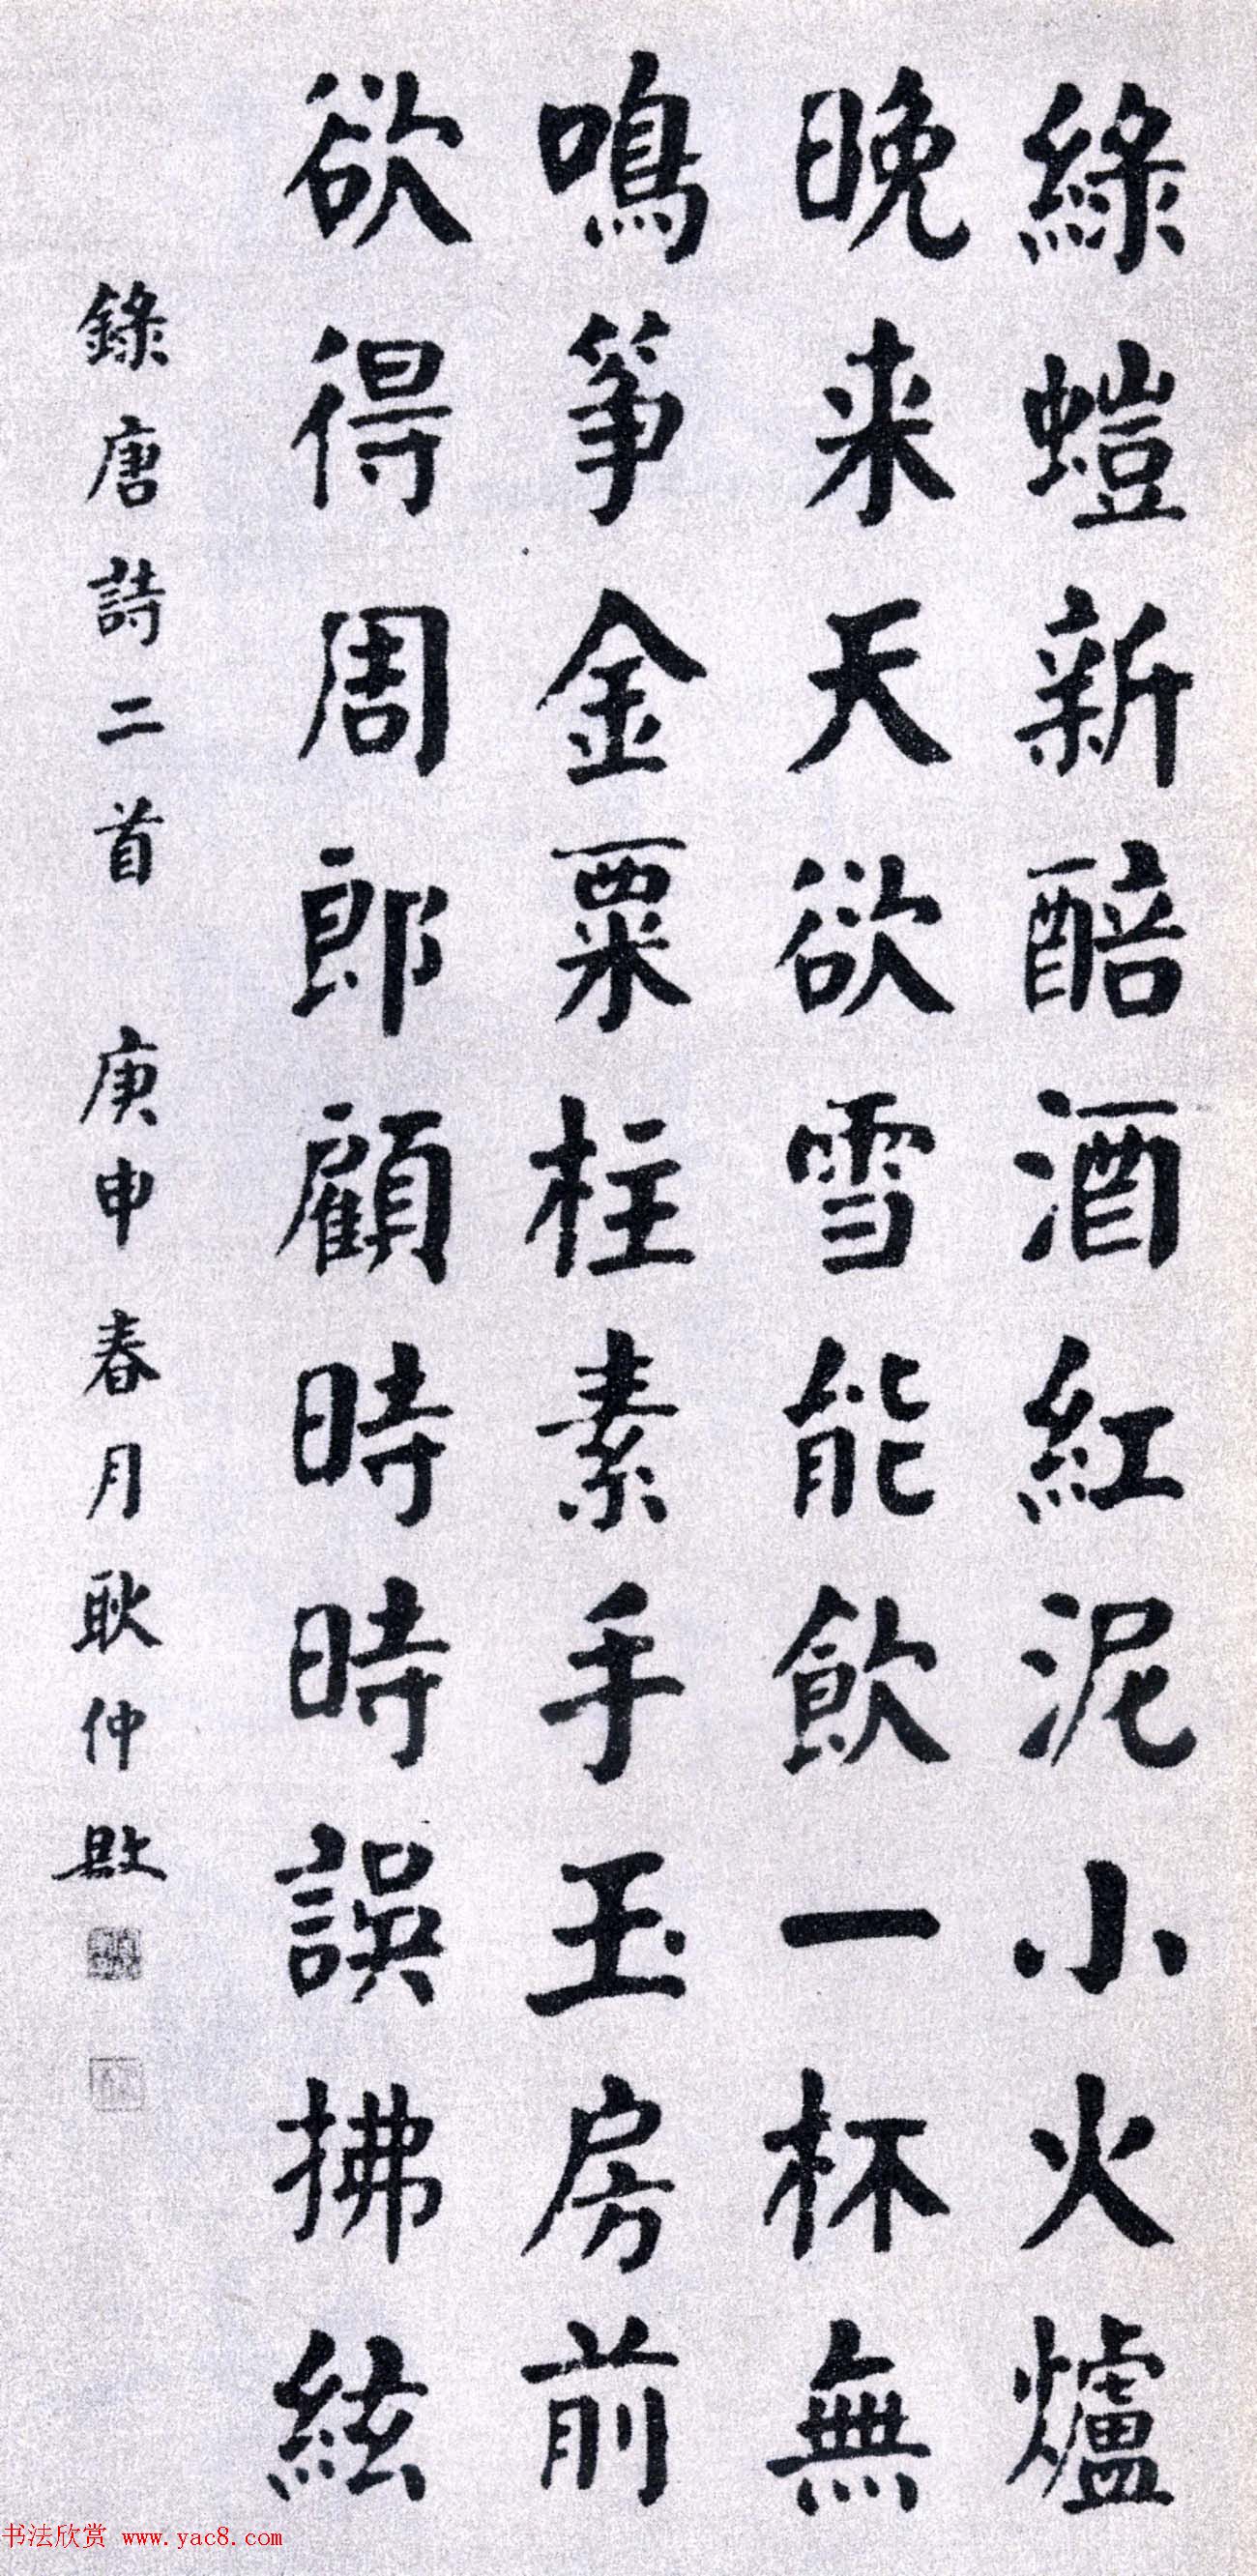 綠螘新醅酒紅泥小火爐
晚来天欲雪能飲一杯無
鳴筝金粟柱素手玉房前
欲得周郎顧時時誤拂絃
錄唐詩二首 庚申春月耿仲敭
书法欣赏 www.yac8.com